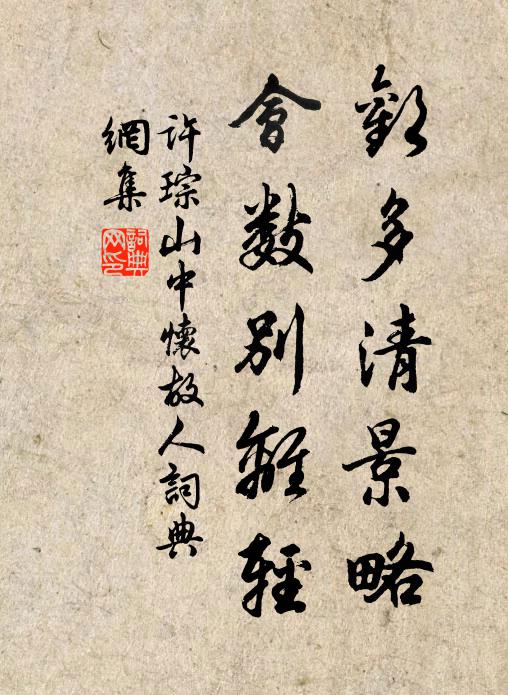 歡多清景略
會數別離輕
許琮山中懷故人詞典
網集
詞典
网印